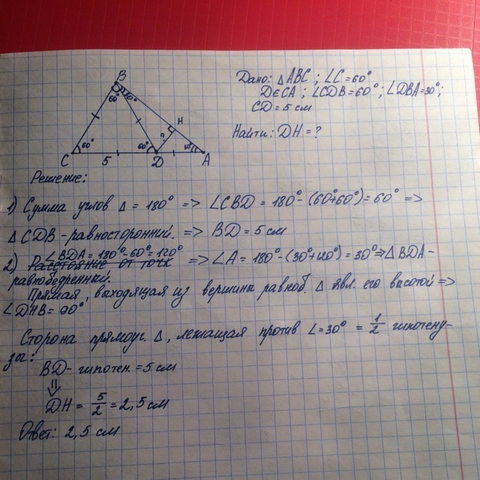 Дано: △ABC; ∠C=60°
D∈CA; ∠CDB=60°; ∠DBA=30°;
CD=5 см
Найти: DH=?
B
60° 30°
H
C 60° 5 60° D A
Решение:
1) Сумма углов △ = 180° => ∠CBD = 180°-(60°+60°)=60° =>
△CDB-равносторонний. => BD=5 см
∠BDA=180°-60°=120°
2) Расстояние от точк => ∠A=180°-(30°+120°)=30°=>△BDA-
равнобедренный.
Прямая, выходящая из вершины равноб. △ явл. его высотой =>
∠DHB=90°
Сторона прямоуг. △, лежащая против ∠=30° = 1/2 гипотену-
зы:
BD-гипотен.=5 см
⇓
DH = 5/2 = 2,5 см
Ответ: 2,5 см